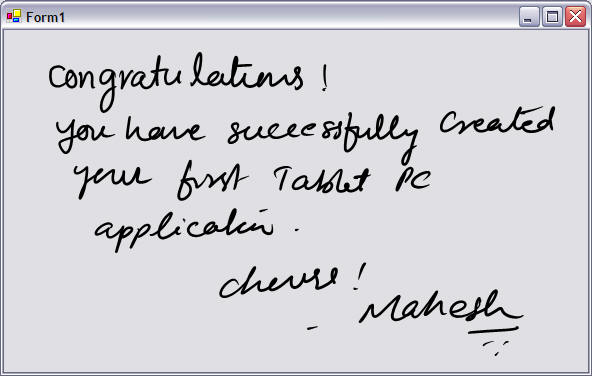 Form1
Congratulations!
you have successfully created
your first Tablet PC
application.
cheers!
- Mahesh